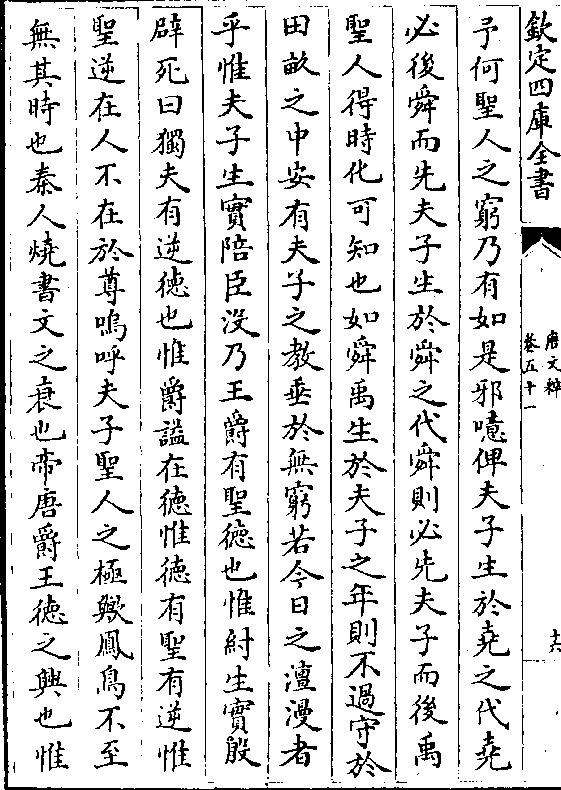 欽定四庫全書
唐文粹
卷五十一
十六
予何聖人之窮乃有如是邪噫俾夫子生於堯之代堯
必後舜而先夫子生於舜之代舜則必先夫子而後禹
聖人得時化可知也如舜禹生於夫子之年則不過守於
田畝之中安有夫子之教垂於無窮若今日之澶漫者
乎惟夫子生實陪臣沒乃王爵有聖德也惟紂生實殷
辟死曰獨夫有逆德也惟爵謚在德惟德有聖有逆惟
聖逆在人不在於尊嗚呼夫子聖人之極歟鳳鳥不至
無其時也秦人燒書文之衰也帝唐爵王德之興也惟